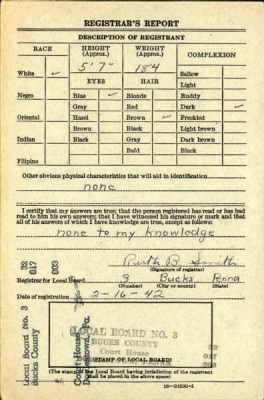 REGISTRAR'S REPORT
DESCRIPTION OF REGISTRANT
RACE HEIGHT (Approx.) WEIGHT (Approx.) COMPLEXION
5' 7" 184
White ✓ Sallow
EYES HAIR Light
Negro Blue ✓ Blonde Ruddy
Gray Red Dark ✓
Oriental Hazel Brown ✓ Freckled
Brown Black Light brown
Indian Black Gray Dark brown
Bald Black
Filipino
Other obvious physical characteristics that will aid in identification
none
I certify that my answers are true; that the person registered has read or has had
read to him his own answers; that I have witnessed his signature or mark and that
all of his answers of which I have knowledge are true, except as follows:
none to my knowledge
Ruth B. Smith
(Signature of registrar)
Registrar for Local Board 3 Bucks Penna
(Number) (City or county) (State)
Date of registration 2-16-42
32 003
017
Local Board No. 3
Bucks County
Court House
LOCAL BOARD NO. 3
BUCKS COUNTY
Court House
(STAMP OF LOCAL BOARD)
(The stamp of the Local Board having jurisdiction of the registrant
shall be placed in the above space)
16—21630-1